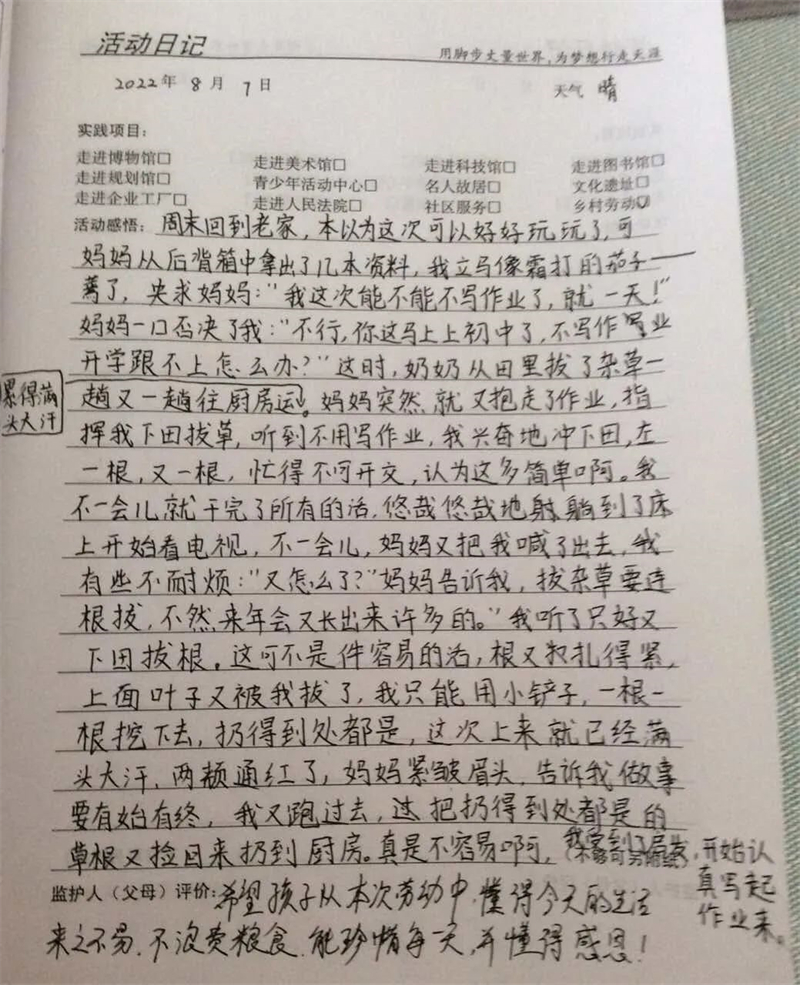 活动日记
用脚步丈量世界,为梦想行走天涯
2022年 8月 7日
天气 晴
实践项目:
走进博物馆□ 走进美术馆□ 走进科技馆□ 走进图书馆□
走进规划馆□ 青少年活动中心□ 名人故居□ 文化遗址□
走进企业工厂□ 走进人民法院□ 社区服务□ 乡村劳动☑
活动感悟:周末回到老家,本以为这次可以好好玩玩了,可
妈妈从后背箱中拿出了几本资料,我立马像霜打的茄子——
蔫了,央求妈妈:“我这次能不能不写作业了,就一天!”
妈妈一口否决了我:“不行,你这马上上初中了,不写作业
开学跟不上怎么办?”这时,奶奶从田里拔了杂草一
累得满
头大汗
趟又一趟往厨房运。妈妈突然就又抱走了作业,指
挥我下田拔草,听到不用写作业,我兴奋地冲下田,左
一根,又一根,忙得不可开交,认为这多简单啊。我
不一会儿就干完了所有的活,悠哉悠哉地躺到了床
上开始看电视,不一会儿,妈妈又把我喊了出去,我
有些不耐烦:“又怎么了?”妈妈告诉我,拔杂草要连
根拔,不然来年会又长出来许多的。”我听了只好又
下田拔根。这可不是件容易的活,根又扎得紧,
上面叶子又被我拔了,我只能用小铲子,一根一
根挖下去,扔得到处都是,这次上来就已经满
头大汗,两颊通红了,妈妈紧皱眉头,告诉我做事
要有始有终,我又跑过去,把扔得到处都是的
草根又捡回来扔到厨房。真是不容易啊,我拿到了,开始认
真写起
作业来。
监护人(父母)评价:希望孩子从本次劳动中,懂得今天的生活
来之不易,不浪费粮食,能珍惜每一天,并懂得感恩!